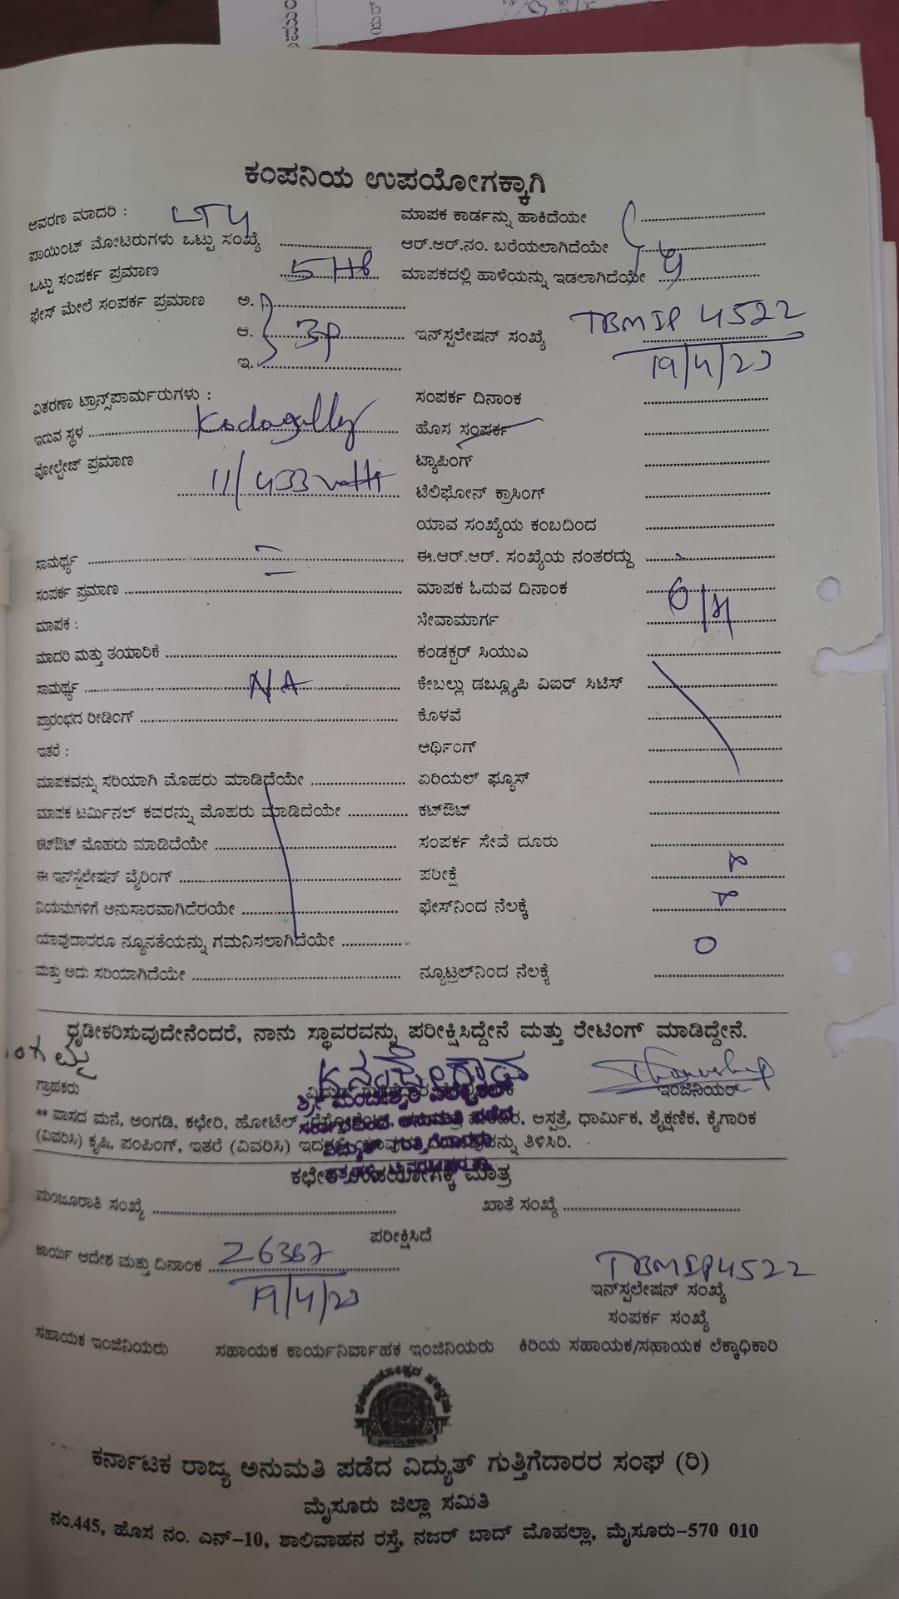 ಕಂಪನಿಯ ಉಪಯೋಗಕ್ಕಾಗಿ
ಆವರಣ ಮಾದರಿ : LT4 ಮಾಪಕ ಕಾರ್ಡನ್ನು ಹಾಕಿದೆಯೇ
ಪಾಯಿಂಟ್ ಮೋಟರುಗಳು ಒಟ್ಟು ಸಂಖ್ಯೆ ಆರ್.ಆರ್.ನಂ. ಬರೆಯಲಾಗಿದೆಯೇ
ಒಟ್ಟು ಸಂಪರ್ಕ ಪ್ರಮಾಣ ಮಾಪಕದಲ್ಲಿ ಹಾಳೆಯನ್ನು ಇಡಲಾಗಿದೆಯೇ
ಫೇಸ್ ಮೇಲೆ ಸಂಪರ್ಕ ಪ್ರಮಾಣ ಅ.
ಆ. 3P ಇನ್‌ಸ್ಟಲೇಷನ್ ಸಂಖ್ಯೆ TBMIP 4522
ಇ. 19/4/23
ವಿತರಣಾ ಟ್ರಾನ್ಸ್‌ಪಾರ್ಮರುಗಳು : ಸಂಪರ್ಕ ದಿನಾಂಕ
ಇರುವ ಸ್ಥಳ Kadagally ಹೊಸ ಸಂಪರ್ಕ
ವೋಲ್ಟೇಜ್ ಪ್ರಮಾಣ 11/433 ಟ್ಯಾಪಿಂಗ್
ಟೆಲಿಫೋನ್ ಕ್ರಾಸಿಂಗ್
ಯಾವ ಸಂಖ್ಯೆಯ ಕಂಬದಿಂದ
ಸಾಮರ್ಥ್ಯ ಈ.ಆರ್.ಆರ್. ಸಂಖ್ಯೆಯ ನಂತರದ್ದು
ಸಂಪರ್ಕ ಪ್ರಮಾಣ ಮಾಪಕ ಓದುವ ದಿನಾಂಕ
ಮಾಪಕ : ಸೇವಾಮಾರ್ಗ O/H
ಮಾದರಿ ಮತ್ತು ತಯಾರಿಕೆ ಕಂಡಕ್ಟರ್ ಸಿಯುಎ
ಸಾಮರ್ಥ್ಯ NA ಕೇಬಲ್ಲು ಡಬ್ಲ್ಯೂಪಿ ವಿಐರ್ ಸಿಟಿಸ್
ಪ್ರಾರಂಭದ ರೀಡಿಂಗ್ ಕೊಳವೆ
ಇತರೆ : ಆರ್ಥಿಂಗ್
ಮಾಪಕವನ್ನು ಸರಿಯಾಗಿ ಮೊಹರು ಮಾಡಿದೆಯೇ ಏರಿಯಲ್ ಫ್ಯೂಸ್
ಮಾಪಕ ಟರ್ಮಿನಲ್ ಕವರನ್ನು ಮೊಹರು ಮಾಡಿದೆಯೇ ಕಟ್‌ಔಟ್
ಕಟ್‌ಔಟ್ ಮೊಹರು ಮಾಡಿದೆಯೇ ಸಂಪರ್ಕ ಸೇವೆ ದೂರು
ಈ ಇನ್‌ಸ್ಟಲೇಷನ್ ವೈರಿಂಗ್ ಪರೀಕ್ಷೆ
ನಿಯಮಗಳಿಗೆ ಅನುಸಾರವಾಗಿದೆರಯೇ ಫೇಸ್‌ನಿಂದ ನೆಲಕ್ಕೆ
ಯಾವುದಾದರೂ ನ್ಯೂನತೆಯನ್ನು ಗಮನಿಸಲಾಗಿದೆಯೇ O
ಮತ್ತು ಅದು ಸರಿಯಾಗಿದೆಯೇ ನ್ಯೂಟ್ರಲ್‌ನಿಂದ ನೆಲಕ್ಕೆ
ಧೃಡೀಕರಿಸುವುದೇನೆಂದರೆ, ನಾನು ಸ್ಥಾವರವನ್ನು ಪರೀಕ್ಷಿಸಿದ್ದೇನೆ ಮತ್ತು ರೇಟಿಂಗ್ ಮಾಡಿದ್ದೇನೆ.
ಗ್ರಾಹಕರು ಇಂಜಿನಿಯರ್
** ವಾಸದ ಮನೆ, ಅಂಗಡಿ, ಕಛೇರಿ, ಹೋಟೆಲ್ ಆಸ್ಪತ್ರೆ, ಧಾರ್ಮಿಕ, ಶೈಕ್ಷಣಿಕ, ಕೈಗಾರಿಕ
(ವಿವರಿಸಿ) ಕೃಷಿ, ಪಂಪಿಂಗ್, ಇತರೆ (ವಿವರಿಸಿ) ತಿಳಿಸಿರಿ.
ಕಛೇರಿ ಉಪಯೋಗಕ್ಕೆ ಮಾತ್ರ
ಮಂಜೂರಾತಿ ಸಂಖ್ಯೆ ಖಾತೆ ಸಂಖ್ಯೆ
ಪರೀಕ್ಷಿಸಿದೆ
ಕಾರ್ಯ ಆದೇಶ ಮತ್ತು ದಿನಾಂಕ 26367 TBMIP4522
19/4/23 ಇನ್‌ಸ್ಟಲೇಷನ್ ಸಂಖ್ಯೆ
ಸಂಪರ್ಕ ಸಂಖ್ಯೆ
ಸಹಾಯಕ ಇಂಜಿನಿಯರು ಸಹಾಯಕ ಕಾರ್ಯನಿರ್ವಾಹಕ ಇಂಜಿನಿಯರು ಕಿರಿಯ ಸಹಾಯಕ/ಸಹಾಯಕ ಲೆಕ್ಕಾಧಿಕಾರಿ
ಕರ್ನಾಟಕ ರಾಜ್ಯ ಅನುಮತಿ ಪಡೆದ ವಿದ್ಯುತ್ ಗುತ್ತಿಗೆದಾರರ ಸಂಘ (ರಿ)
ಮೈಸೂರು ಜಿಲ್ಲಾ ಸಮಿತಿ
ನಂ.445, ಹೊಸ ನಂ. ಎನ್-10, ಶಾಲಿವಾಹನ ರಸ್ತೆ, ನಜರ್ ಬಾದ್ ಮೊಹಲ್ಲಾ, ಮೈಸೂರು-570 010